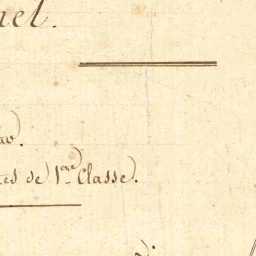 nel.
au.
es de 1ere Classe.